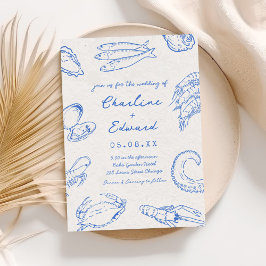 join us for the wedding of
Charline
+
Edward
05.08.XX
5:30 in the afternoon
Boho Garden Hotel
Street Chicago
Dinner & Dancing to follow